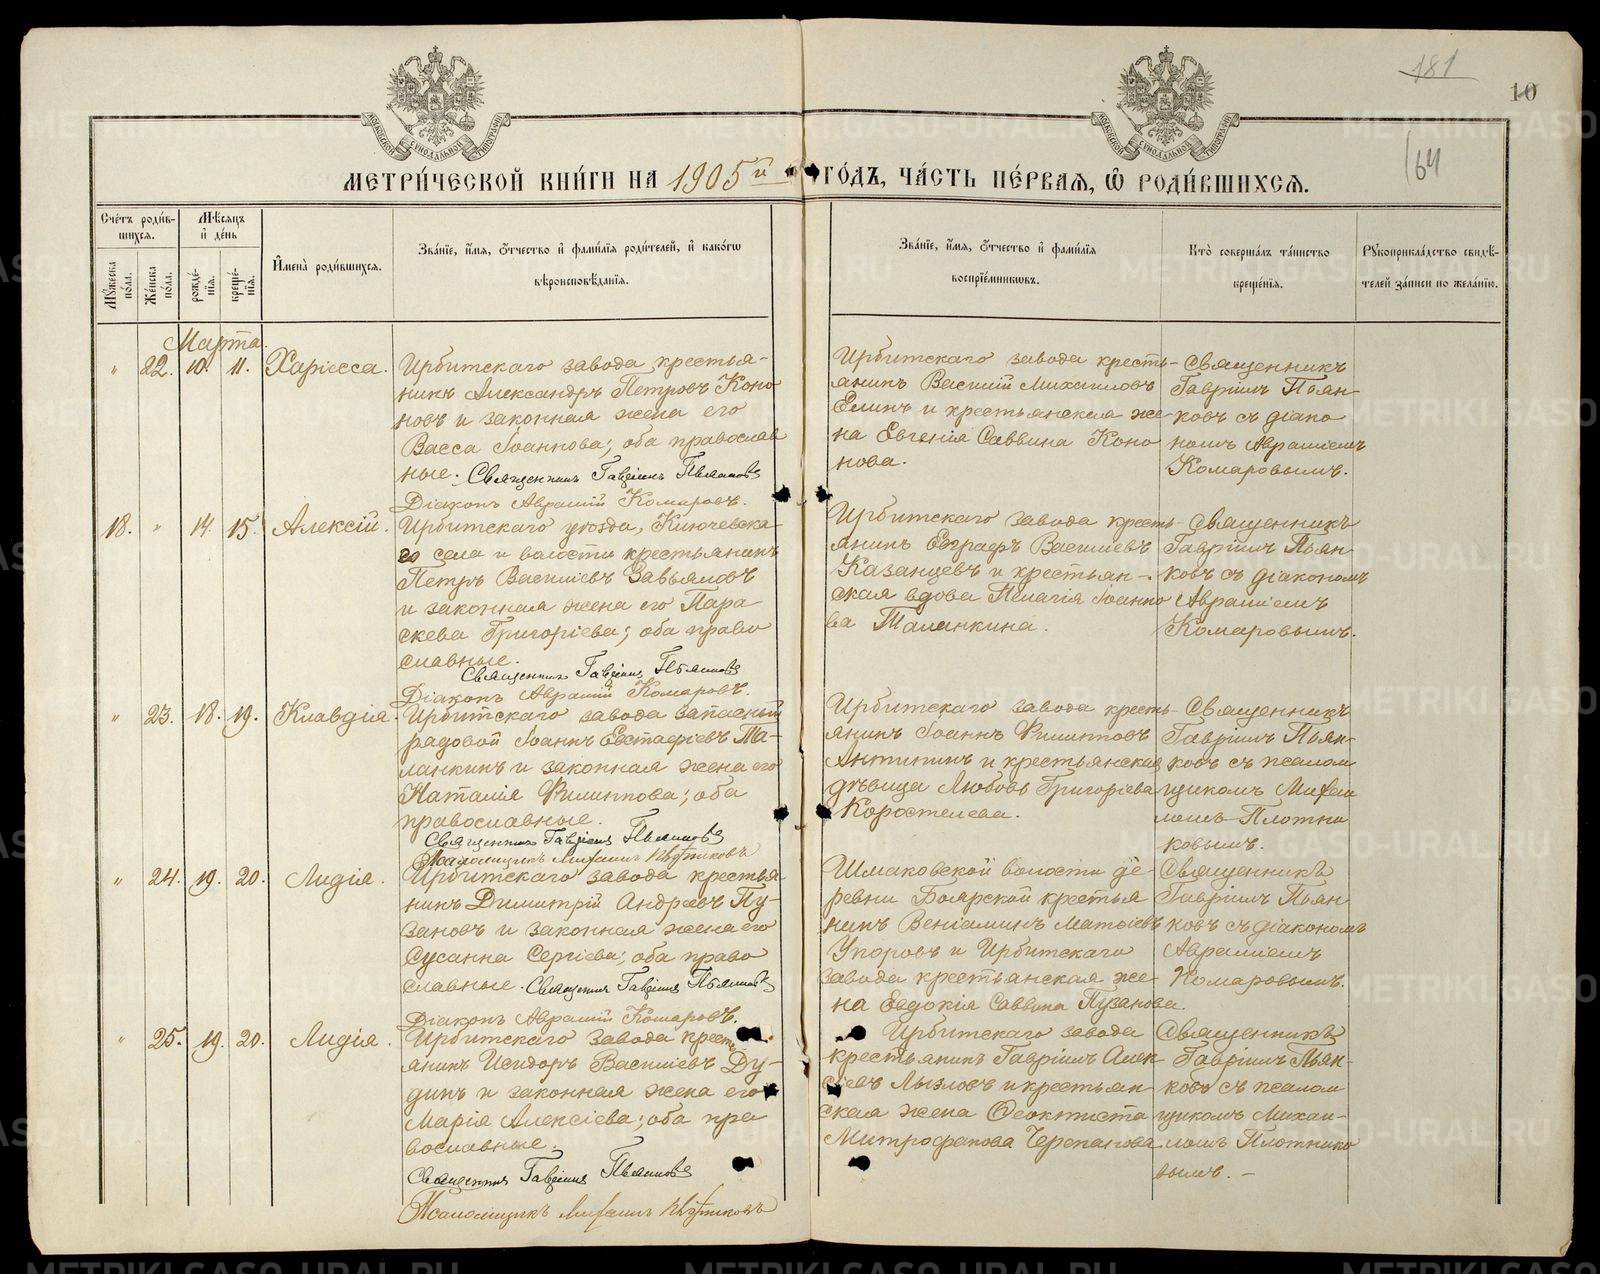 181
10
64
МЕТРИЧЕСКОЙ КНИГИ НА 1905й ГОДЪ, ЧАСТЬ ПЕРВАЯ, Ѡ РОДИВШИХСЯ.
Счетъ родив-
шихся.
Мѣсяцъ
и день
Мужеска
пола.
Женска
пола.
рожде-
нія.
креще-
нія.
Имена родившихся.
Званіе, имя, отчество и фамилія родителей, и какогѡ
вѣроисповѣданія.
Званіе, имя, отчество и фамилія
воспріемниковъ.
Кто совершалъ таинство
крещенія.
Рукоприкладство свидѣ-
телей записи по желанію.
Марта.
" 22. 10. 11. Харіесса.
Ирбитскаго завода крестья-
нинъ Александръ Петровъ Коно
новъ и законная жена его
Васса Іоаннова; оба православ
ные. Священникъ Гавріилъ Пьянковъ
Діаконъ Аврамій Комаровъ.
Ирбитскаго завода кресть-
янинъ Василій Михаиловъ
Елинъ и крестьянская же
на Евгенія Саввина Коно
нова.
Священникъ
Гавріилъ Пьян-
ковъ съ діако
номъ Авраміемъ
Комаровымъ.
18. " 14. 15. Алексій.
Ирбитскаго уѣзда, Ключевска
го села и волости крестьянинъ
Петръ Василіевъ Завьяловъ
и законная жена его Пара
скева Григоріева; оба право
славные.
Священникъ Гавріилъ Пьянковъ
Діаконъ Аврамій Комаровъ.
Ирбитскаго завода кресть-
янинъ Евграфъ Василіевъ
Казанцевъ и крестьян-
ская вдова Пелагія Іоанно
ва Таланкина.
Священникъ
Гавріилъ Пьян
ковъ съ діакономъ
Авраміемъ
Комаровымъ.
" 23. 18. 19. Клавдія.
Ирбитскаго завода запасный
рядовой Іоаннъ Евстафіевъ Та-
ланкинъ и законная жена его
Наталія Филиппова; оба
православные.
Священникъ Гавріилъ Пьянковъ
Псаломщикъ Михаилъ Плотниковъ
Ирбитскаго завода кресть-
янинъ Іоаннъ Филипповъ
Антипинъ и крестьянская
дѣвица Любовь Григоріева
Коростелева.
Священникъ
Гавріилъ Пьян-
ковъ съ псалом
щикомъ Михаи
ломъ Плотни
ковымъ.
" 24. 19. 20. Лидія.
Ирбитскаго завода крестья
нинъ Димитрій Андреевъ Пу-
зановъ и законная жена его
Сусанна Сергіева; оба право
славные. Священникъ Гавріилъ Пьянковъ
Діаконъ Аврамій Комаровъ.
Шмаковской волости де-
ревни Боярской крестья
нинъ Веніаминъ Матѳіевъ
Упоровъ и Ирбитскаго
завода крестьянская же
на Евдокія Саввина Пузанова.
Священникъ
Гавріилъ Пьян
ковъ съ діакономъ
Авраміемъ
Комаровымъ.
" 25. 19. 20. Лидія.
Ирбитскаго завода кресть
янинъ Исидоръ Василіевъ Ду-
динъ и законная жена его
Марія Алексіева; оба пра
вославные.
Священникъ Гавріилъ Пьянковъ
Псаломщикъ Михаилъ Плотниковъ
Ирбитскаго завода
крестьянинъ Гавріилъ Алек
сіевъ Лызловъ и крестьян
ская жена Ѳеоктиста
Митрофанова Черепанова.
Священникъ
Гавріилъ Пьян-
ковъ съ псалом
щикомъ Михаи-
ломъ Плотнико
вымъ. -